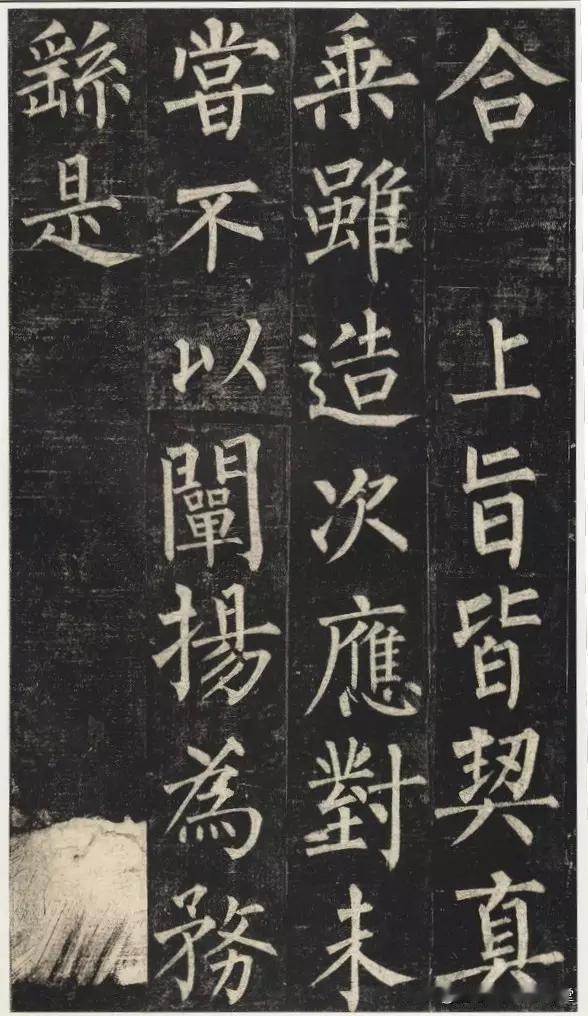 合　上旨皆契真
乗雖造次應對未
甞不以闡揚為務
繇是